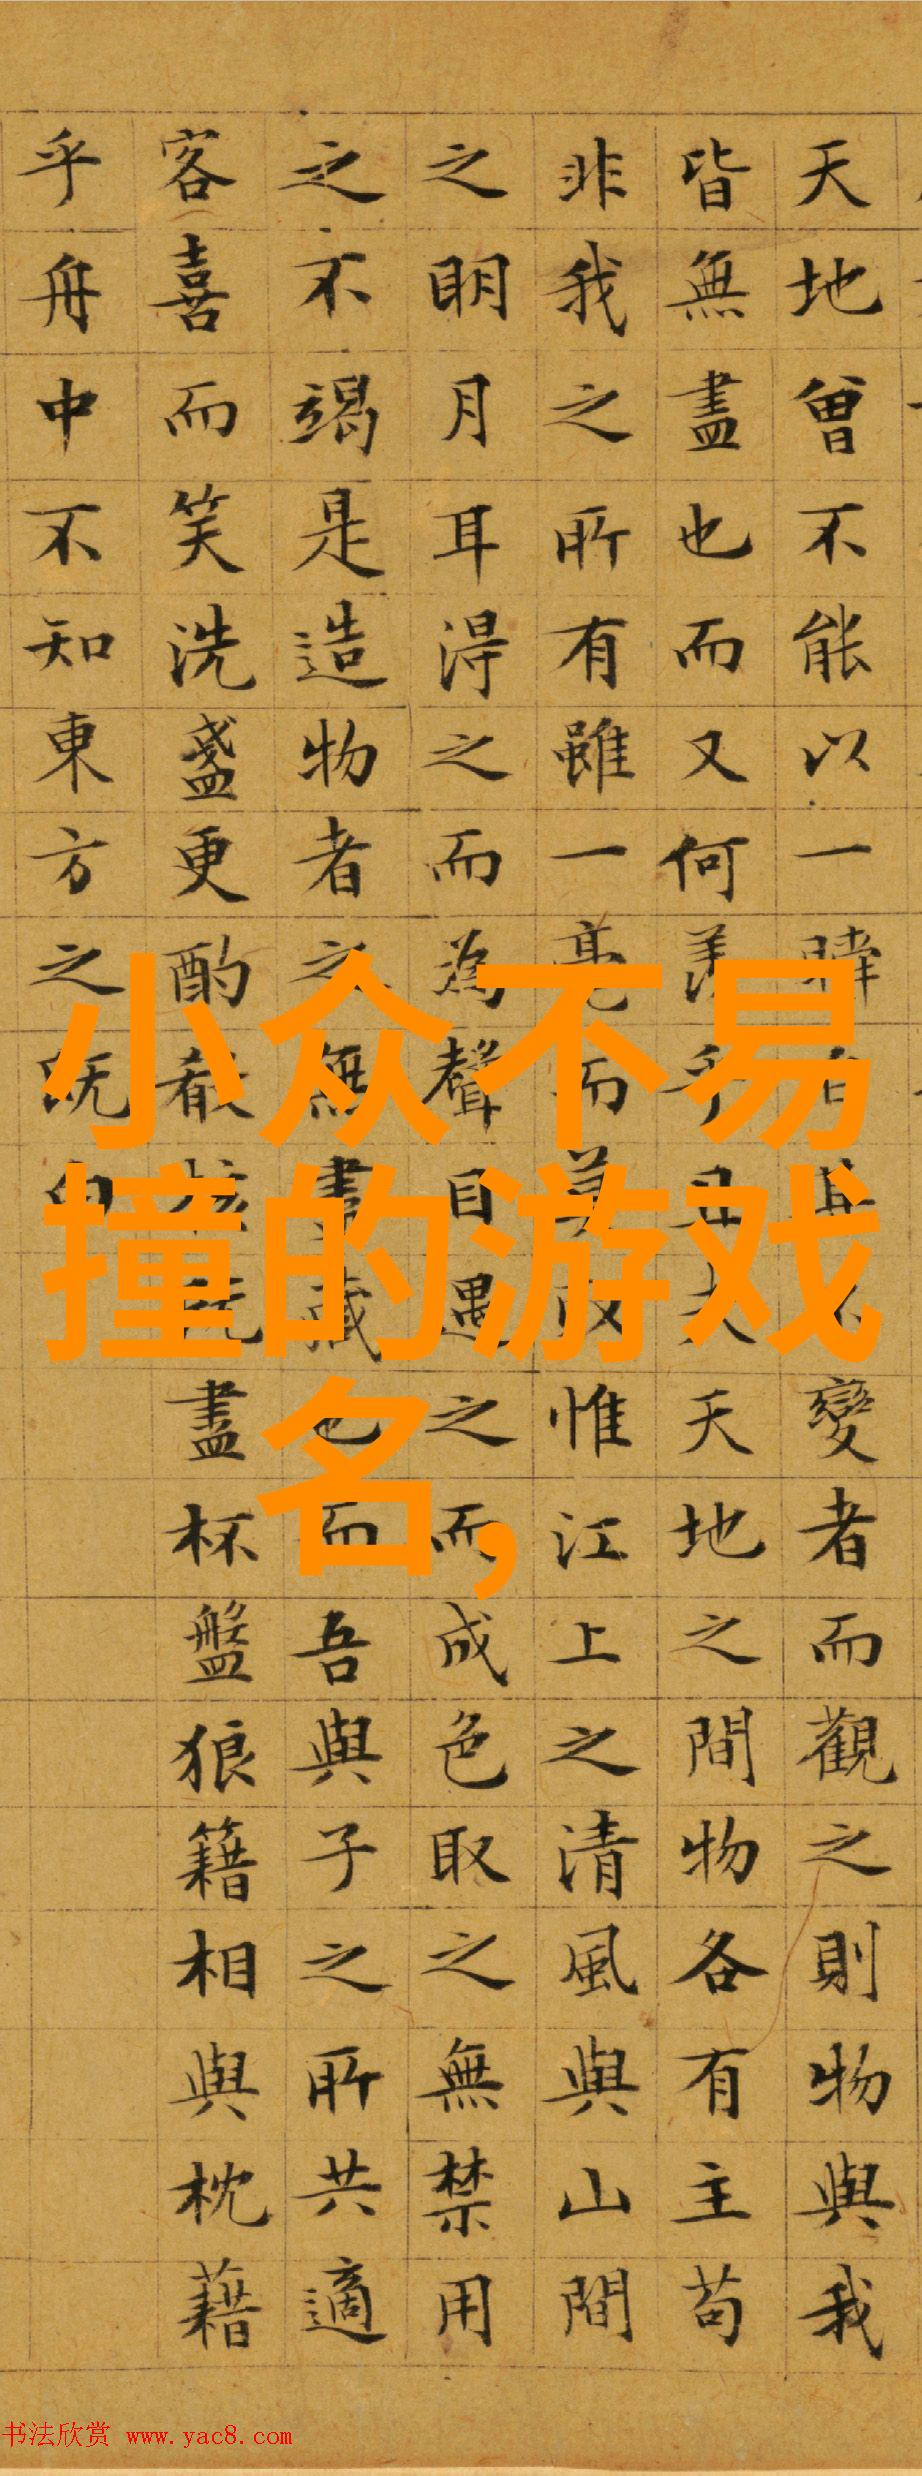 天地曾不能以一瞬自其不變者而觀之則物與我
皆無盡也而又何羨乎且夫天地之間物各有主苟
非我之所有雖一毫而莫取惟江上之清風與山間
之明月耳得之而為聲目遇之而成色取之無禁用
之不竭是造物者之無盡藏也而吾與子之所共適
客喜而笑洗盞更酌殽核既盡杯盤狼籍相與枕藉
乎舟中不知東方之既白
小众不易
撞的游戏
名,
书法欣赏 www.yac8.com